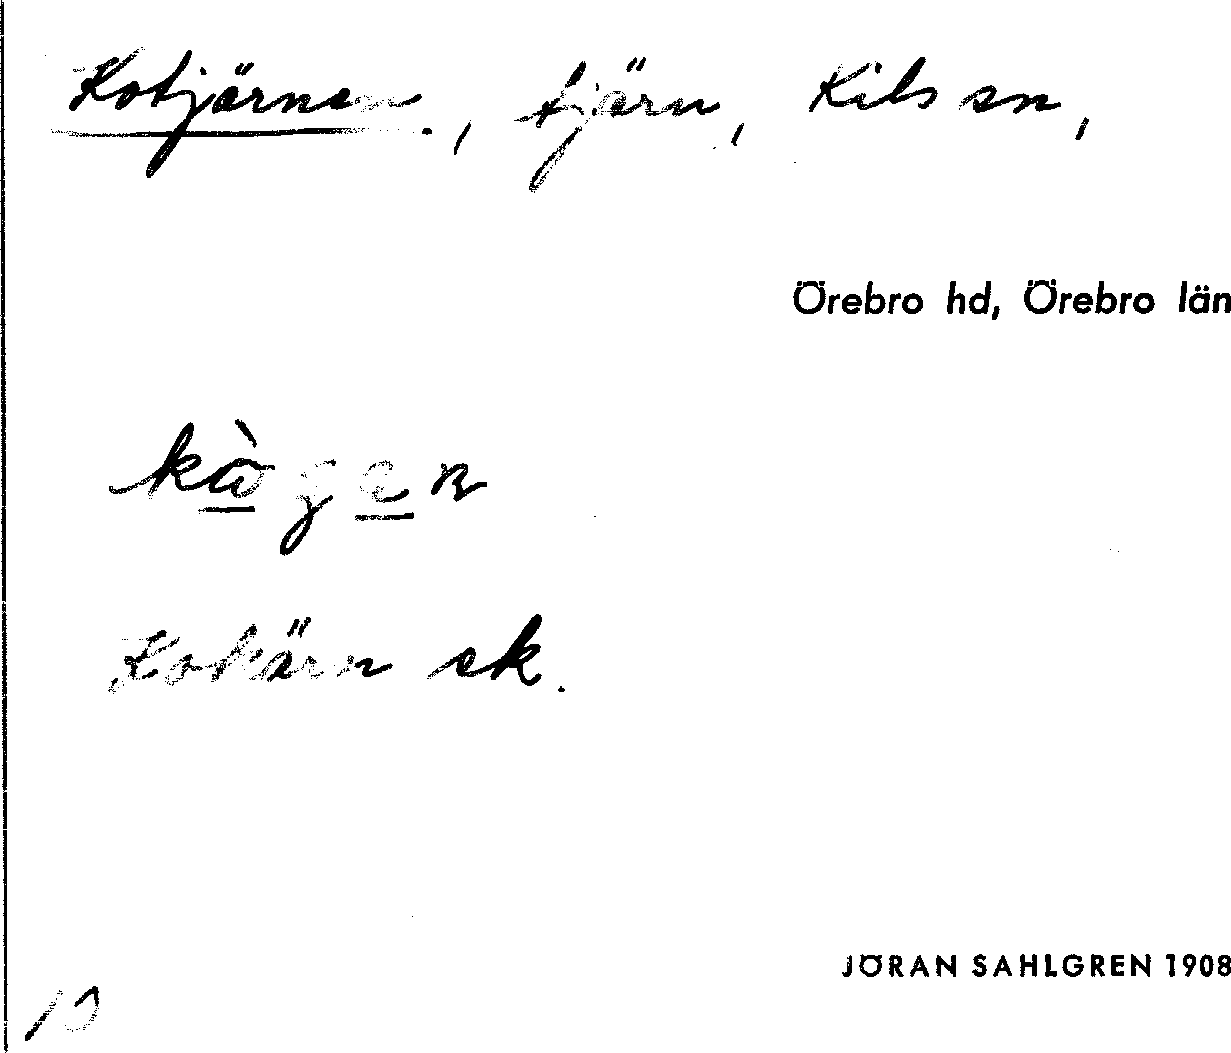 Kotjärnen., tjärn, Kils sn,
Örebro hd, Örebro län
Kokärn ek.
JÖRAN SAHLGREN 1908